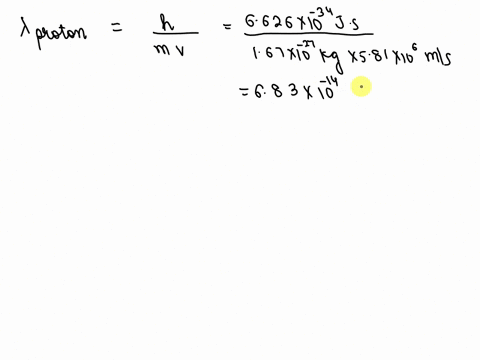 λ proton = h / m v = 6.626 × 10⁻³⁴ J.s / 1.67 × 10⁻²⁷ kg × 5.81 × 10⁶ m/s
= 6.83 × 10⁻¹⁴